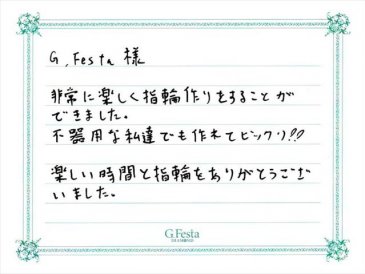 G.Festa 様
非常に楽しく指輪作りをすることが
できました。
不器用な私達でも作れてビックリ!!
楽しい時間と指輪をありがとうござ
いました。
G.Festa